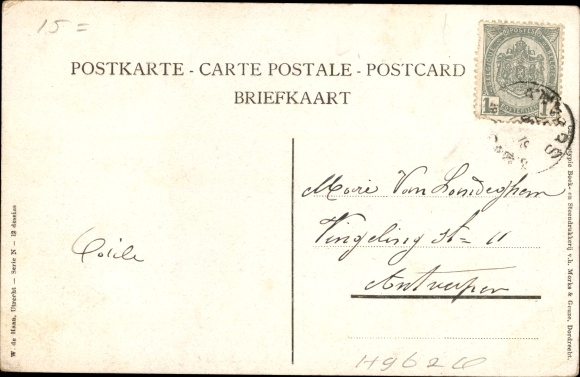 15 =
POSTKARTE - CARTE POSTALE - POSTCARD
BRIEFKAART
POSTES
1 1
ANVERS
Marie Van Londeghem
Vingeling st= 11
Antwerpen
Cécile
W. de Haan, Utrecht — Serie N — 12 dessins
Boek- en Steendrukkerij v.h. Morks & Geuze, Dordrecht.
H962